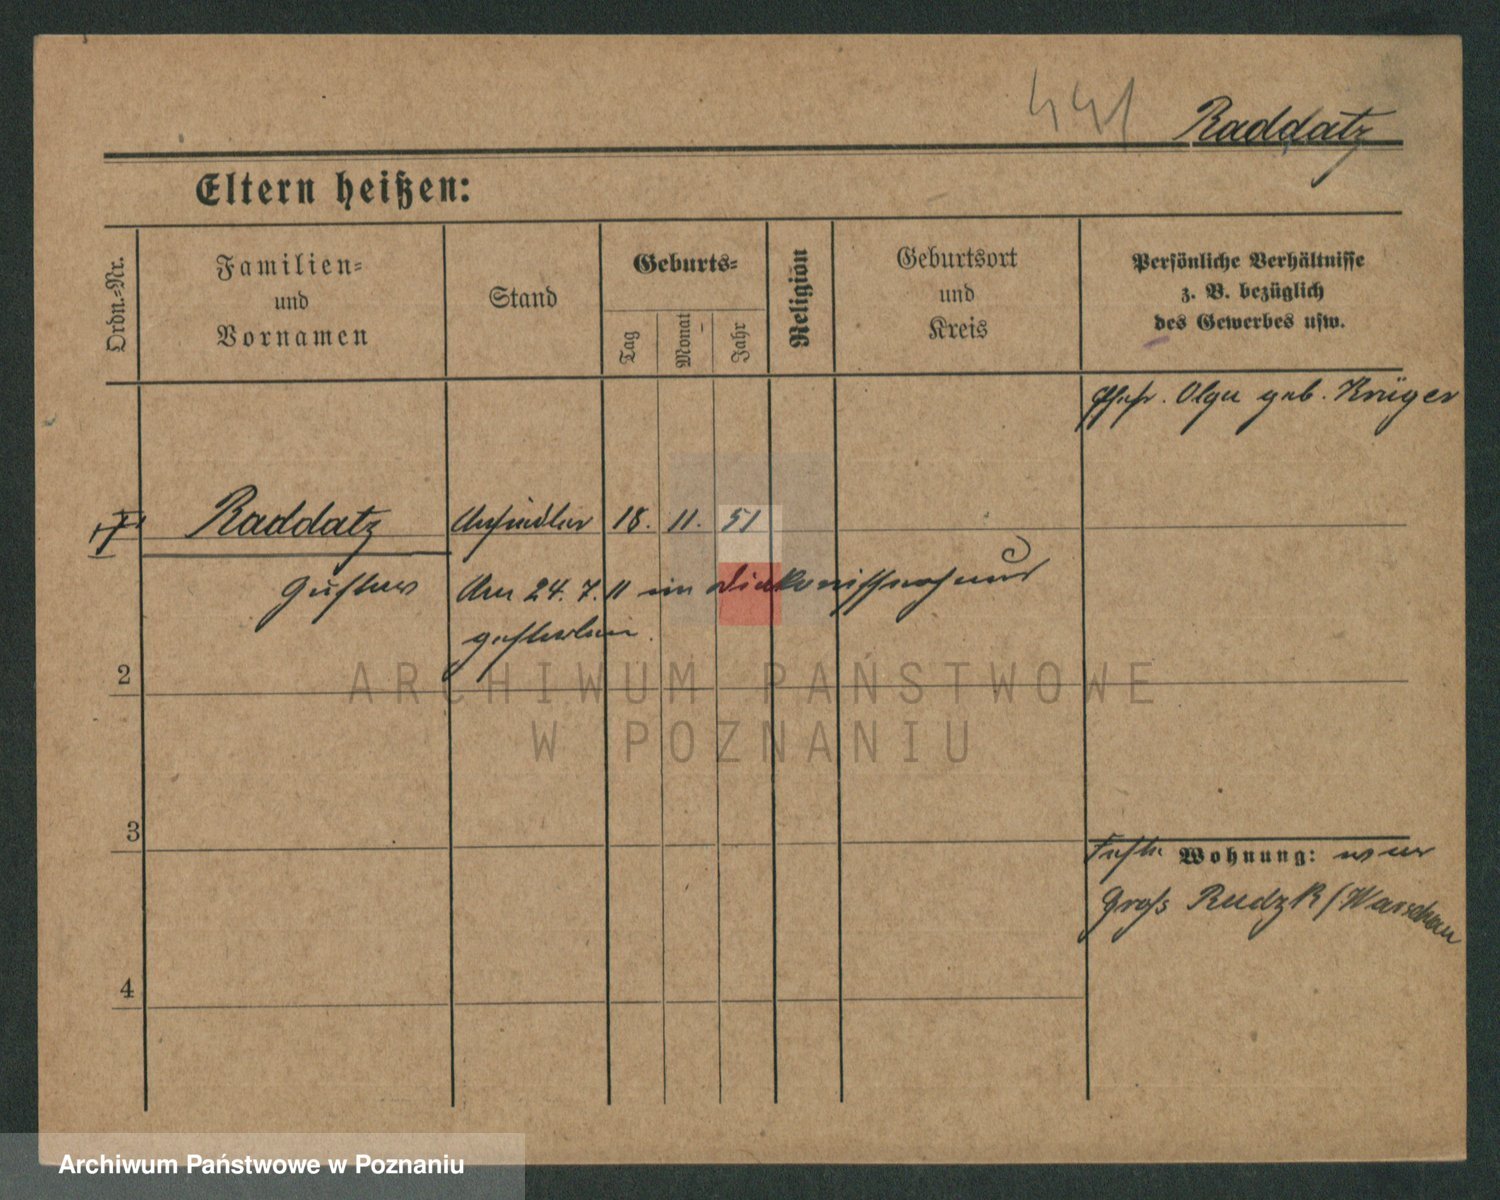 441
Raddatz
Eltern heißen:
Ordn.-Nr.
Familien-
und
Vornamen
Stand
Geburts-
Tag
Monat
Jahr
Religion
Geburtsort
und
Kreis
Persönliche Verhältnisse
z. B. bezüglich
des Gewerbes usw.
Ehefr. Olga geb. Krüger
Raddatz
Ansiedler
18. 11. 51
Gustav
Am 24. 7. 11 im
gestorben.
2
3
4
Wohnung: war
Groß Rudzk / Warschau
ARCHIWUM PAŃSTWOWE
W POZNANIU
Archiwum Państwowe w Poznaniu